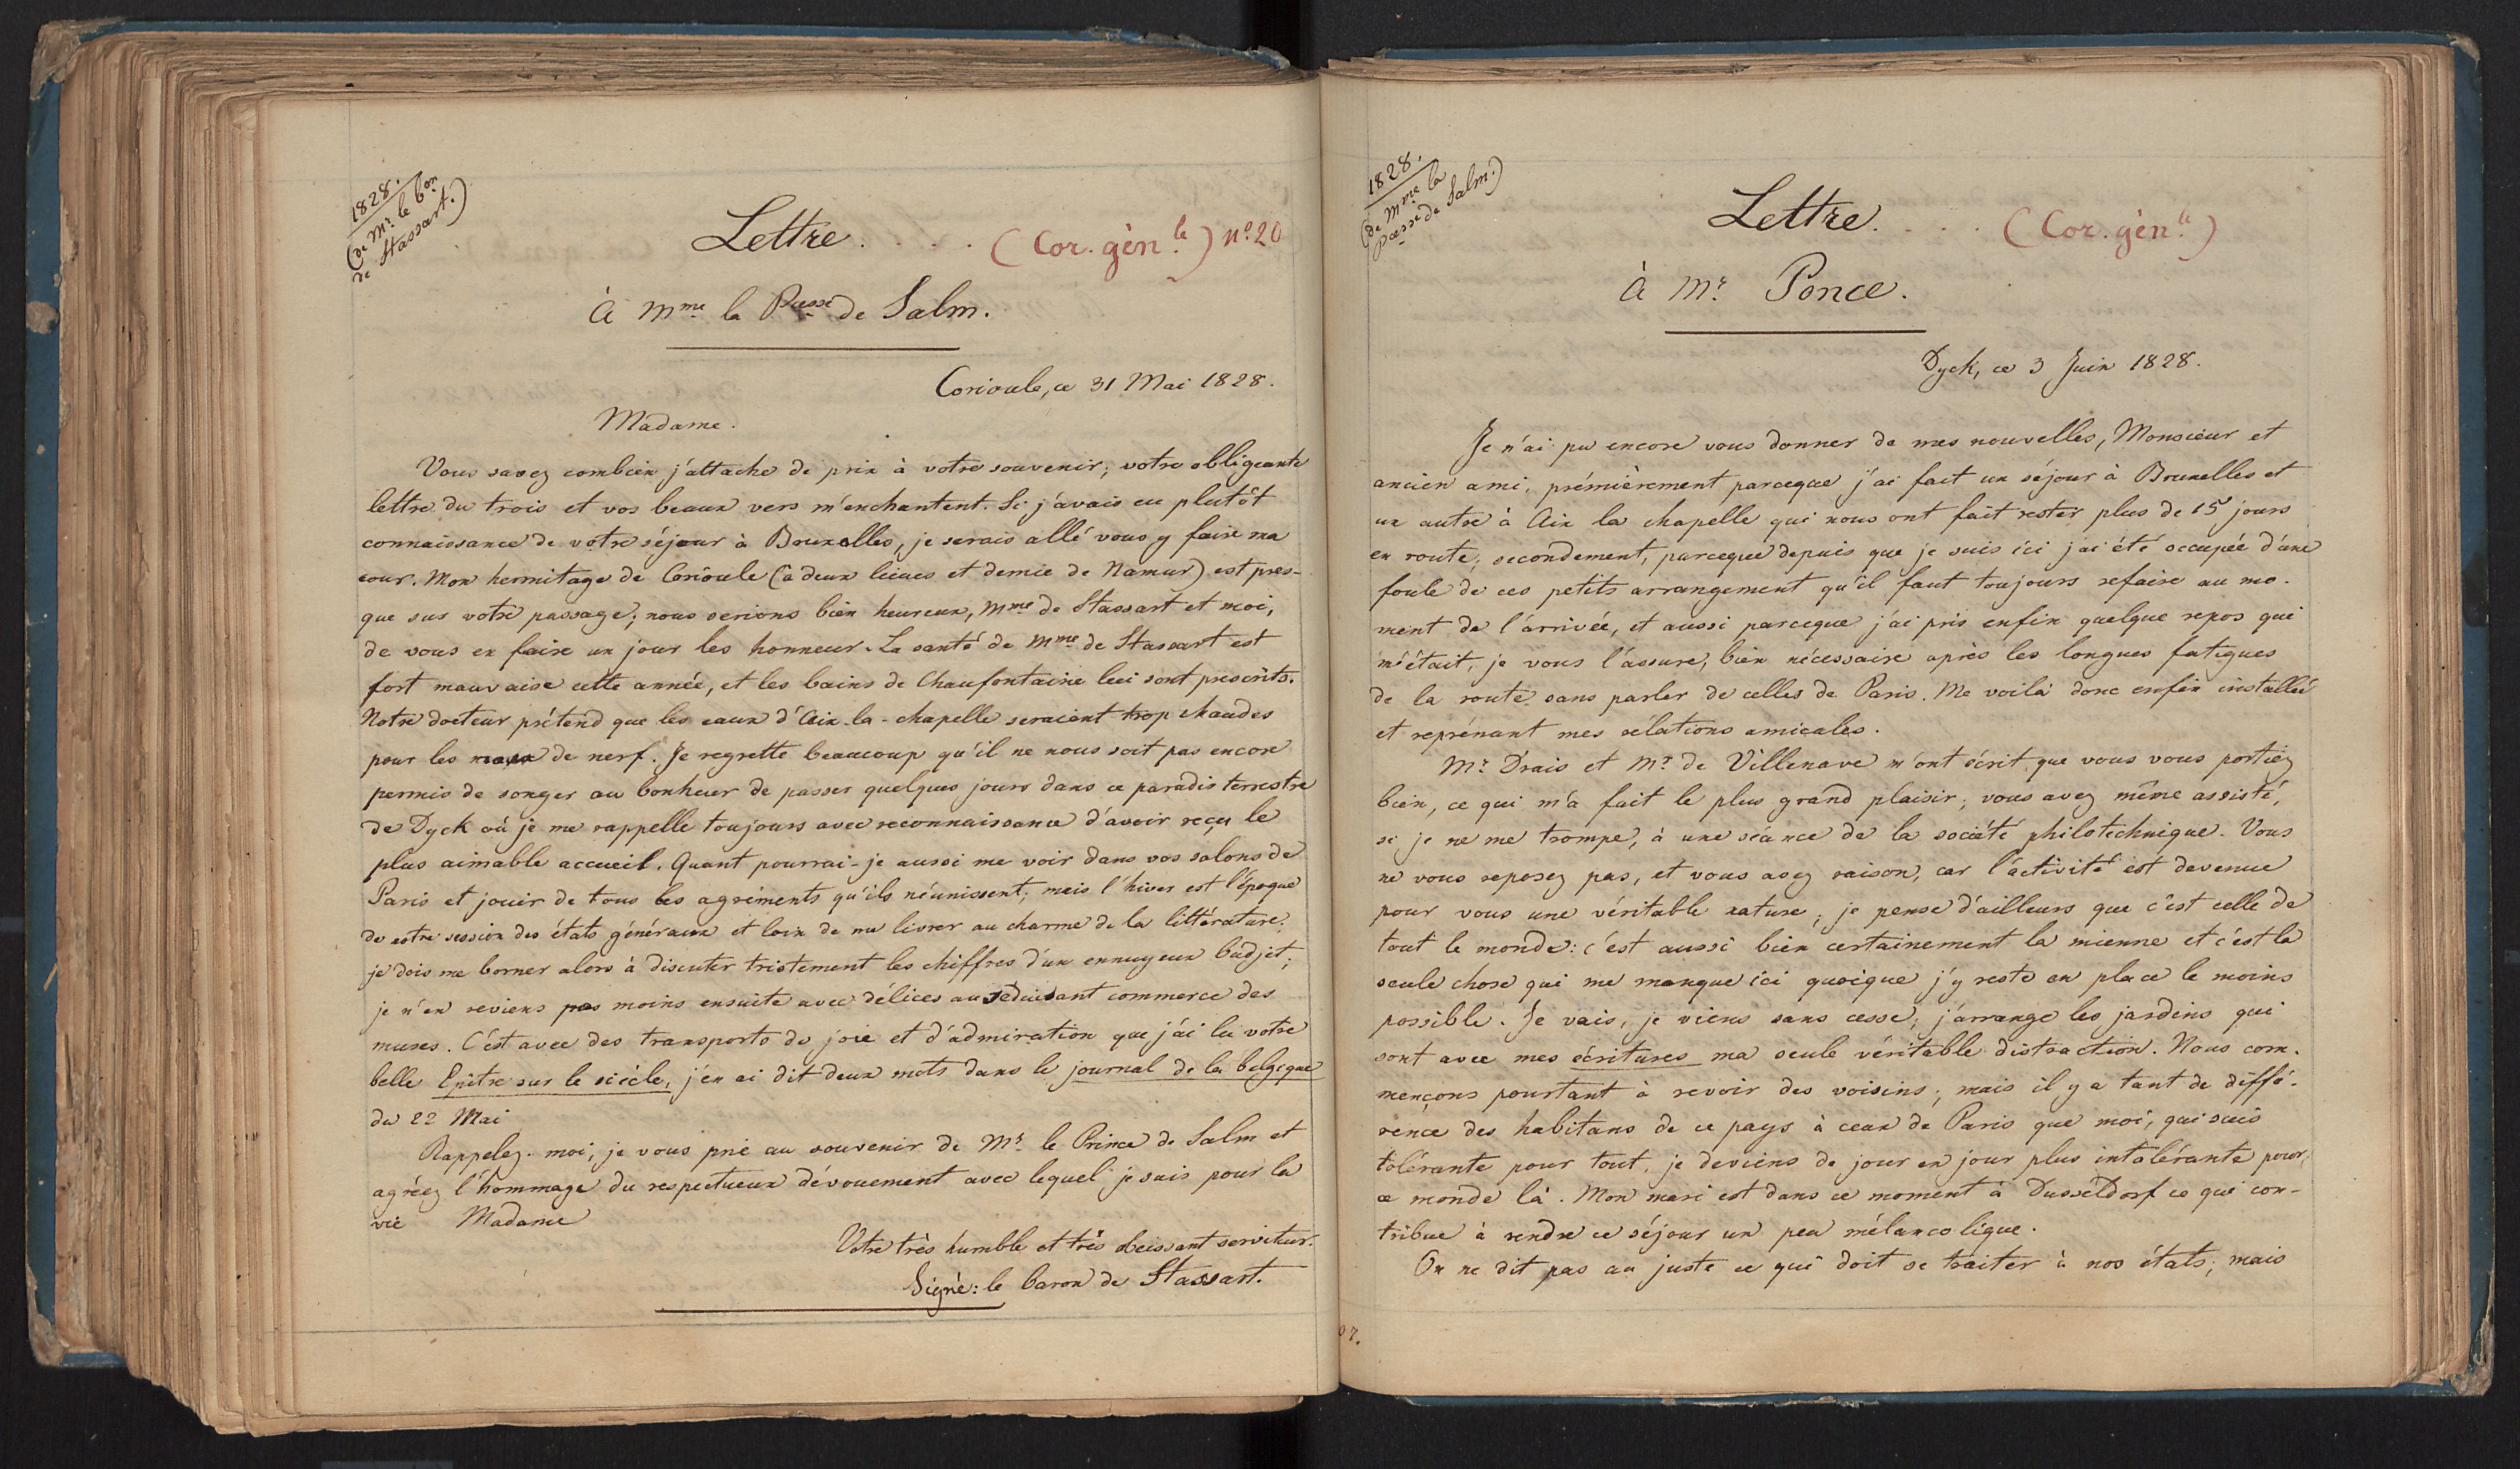 1828.
(de Mr. le bon
de Stassart.)
Lettre. . . . (Cor. gèn.le) no. 20
à Mme la Pcesse de Salm.
Corioule, ce 31 Mai 1828.
Madame.
Vous savez combien j'attache de prix à votre souvenir; votre obligeante
lettre du trois et vos beaux vers m'enchantent. Si j'avais eu plutôt
connaissance de votre séjour à Bruxelles, je serais allé vous y faire ma
cour. Mon hermitage de Corioule (à deux lieues et demie de Namur) est pres-
que sur votre passage; nous serions bien heureux, Mme de Stassart et moi,
de vous en faire un jour les honneur. La santé de Mme de Stassart est
fort mauvaise cette année, et les bains de Chaufontaine lui sont prescrits.
Notre docteur prétend que les eaux d'Aix-la-chapelle seraient trop chaudes
pour les maux de nerf. Je regrette beaucoup qu'il ne nous soit pas encore
permis de songer au bonheur de passer quelques jours dans ce paradis terrestre
de Dyck où je me rappelle toujours avec reconnaissance d'avoir reçu le
plus aimable accueil. Quant pourrai-je aussi me voir dans vos salons de
Paris et jouir de tous les agréments qu'ils réunissent; mais l'hiver est l'époque
de notre session des états généraux et loin de me livrer au charme de la littérature,
je dois me borner alors à discuter tristement les chiffres d'un ennuyeux budjet;
je n'en reviens pas moins ensuite avec délices au séduisant commerce des
muses. C'est avec des transports de joie et d'admiration que j'ai lu votre
belle Epitre sur le siécle, j'en ai dit deux mots dans le journal de la belgique
du 22 Mai
Rappelez-moi, je vous prie au souvenir de Mr. le Prince de Salm et
agréez l'hommage du respectueux dévouement avec lequel je suis pour la
vie Madame
Votre très humble et très obeissant serviteur.
Signé: le baron de Stassart.
1828.
(de Mme la
Pcesse de Salm.)
Lettre. . . . (Cor. gèn.le)
à Mr. Ponce.
Dyck, ce 3 Juin 1828.
Je n'ai pu encore vous donner de mes nouvelles, Monsieur et
ancien ami, prémièrement parceque j'ai fait un séjour à Bruxelles et
un autre à Aix la chapelle qui nous ont fait rester plus de 15 jours
en route; secondement, parceque depuis que je suis ici j'ai été occupée d'une
foule de ces petits arrangement qu'il faut toujours refaire au mo-
ment de l'arrivée, et aussi parceque j'ai pris enfin quelque repos qui
m'était, je vous l'assure, bien nécessaire après les longues fatigues
de la route sans parler de celles de Paris. Me voilà donc enfin installée
et reprénant mes rélations amicales.
Mr. Drais et Mr. de Villenave m'ont écrit que vous vous portiez
bien, ce qui m'a fait le plus grand plaisir; vous avez même assisté,
si je ne me trompe, à une séance de la société philotechnique. Vous
ne vous reposez pas, et vous avez raison, car l'activité est devenue
pour vous une véritable nature; je pense d'ailleurs que c'est celle de
tout le monde: c'est aussi bien certainement la mienne et c'est la
seule chose qui me manque ici quoique j'y reste en place le moins
possible. Je vais, je viens sans cesse; j'arrange les jardins qui
sont avec mes écritures ma seule véritable distraction. Nous com-
mençons pourtant à revoir des voisins; mais il y a tant de diffé-
rence des habitans de ce pays à ceux de Paris que moi, qui suis
tolérante pour tout, je deviens de jour en jour plus intolérante pour
ce monde là. Mon mari est dans ce moment à Dusseldorf ce qui con-
tribue à rendre ce séjour un peu mélancolique.
On ne dit pas au juste ce qui doit se traiter à nos états; mais